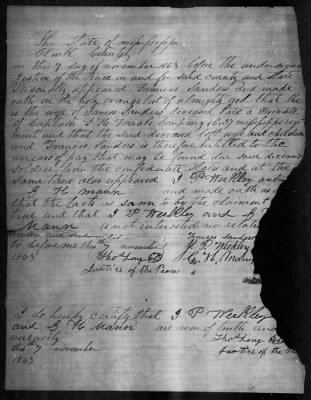 The State of mississippi
Clark County
on this 7 day of november 1863 before the undersigned
Justice of the Peace in and for said county and State
Personally appeared Frances Sanders and made
oath on the holy evangelist of almighty god that she
is the wife of James Sanders deceased late a Private
of Captain company 37 mississippi regi
ment and that the said deceased left wife and children
and Frances Sanders is therefore entitled to the
arears of pay that may be found due said deceased
soldier from the confederate States and at the
same time also appeared J P Weekley and
G H Mann and made oath
that the facts as sworn to by the claiment
true and that J P Weekley and G
Mann is not interested nor relation
Sworn and Frances Sanders
to before me this 7 november J P Weekley
1863 Thos Long G H Mann
Justice of the Peace
I do hereby certify that J P Weekley
and G H Mann are men of truth and
varacity Thos Long
this 7 november Justice of the
1863